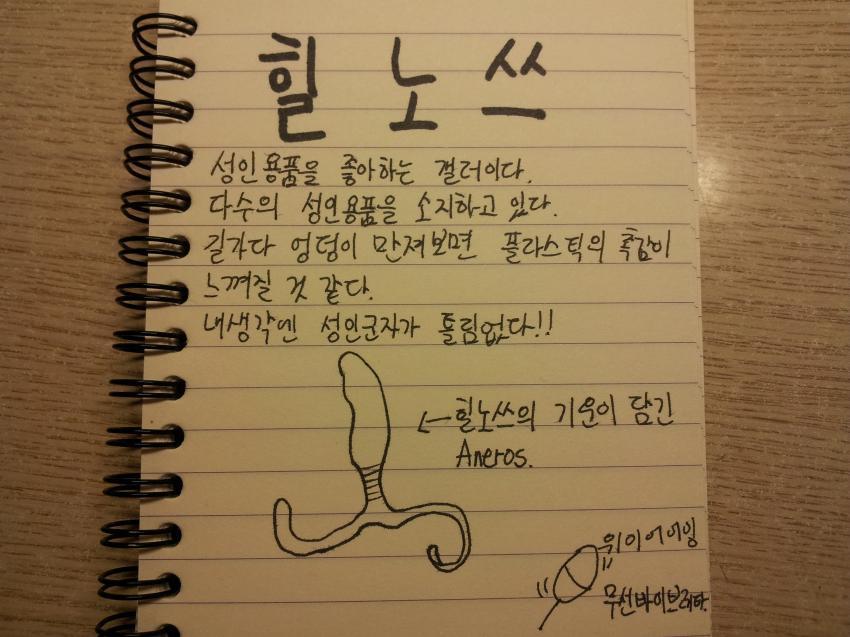 힐노쓰
성인용품을 좋아하는 갤러이다.
다수의 성인용품을 소지하고 있다.
길가다 엉덩이 만져보면 플라스틱의 촉감이
느껴질 것 같다.
내생각엔 성인군자가 틀림없다!!
←힐노쓰의 기운이 담긴
Aneros.
위이이이잉
무선바이브레타.